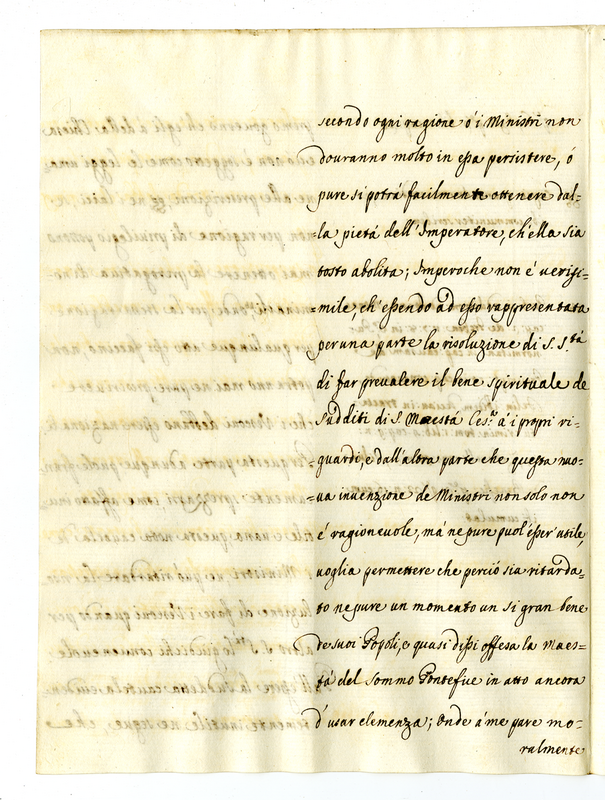 secondo ogni ragione ò i Ministri non
douranno molto in essa persistere, ó
pure si potrá facilmente ottenere dal=
=la pietá dell'Imperatore, ch'ella sia
tosto abolita; Imperoche non é verisi=
=mile, ch'essendo ad esso rappresentata
per una parte la risoluzione di S. S.tá
di far prevalere il bene spirituale de
Sudditi di S. Maestá Ces.a á i propri ri=
=guardi, e dall'altra parte che questa nuo=
=ua inuenzione de Ministri non solo non
é ragioneuole, má ne pure puol'esser'utile,
uoglia permettere che perció sia ritarda=
to ne pure un momento un si gran bene
de suoi Popoli, e quasi dissi offesa la Maes=
tá del Sommo Pontefice in atto ancora
d'usar clemenza; Onde á me pare mo=
ralmente